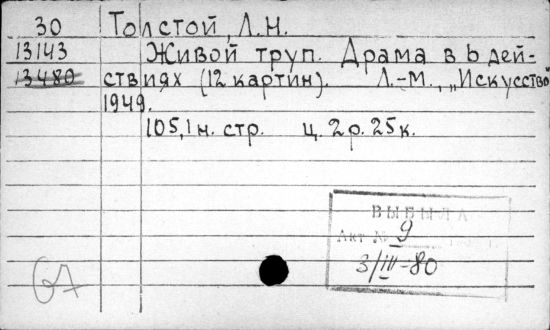 30 Толстой, Л.Н.
13143 Живой труп. Драма в 6 дей-
13480 ствиях (12 картин). Л.-М., „Искусство
1949.
105,1 н. стр. ц. 2 р. 25 к.
ВЫБЫЛА
Акт № 9
3/III-80